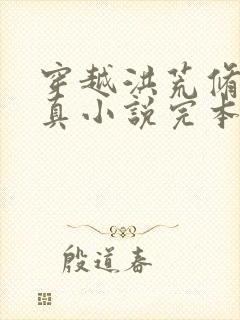 穿越洪荒修
真小说完本
殷道春